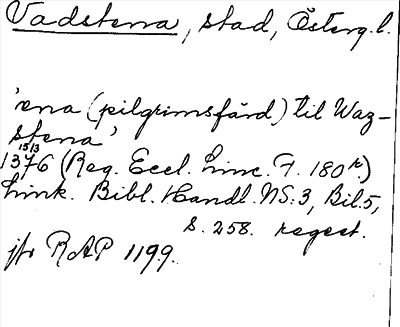 Vadstena, stad, Österg.l.
'ena (pilgrimsfärd) til Waz-
stena'
15/3
1376 (Reg. Eccl. Linc. F. 180 r.)
Link. Bibl. Handl. NS:3, Bil.5,
S. 258. regest.
jfr RAP 1199.